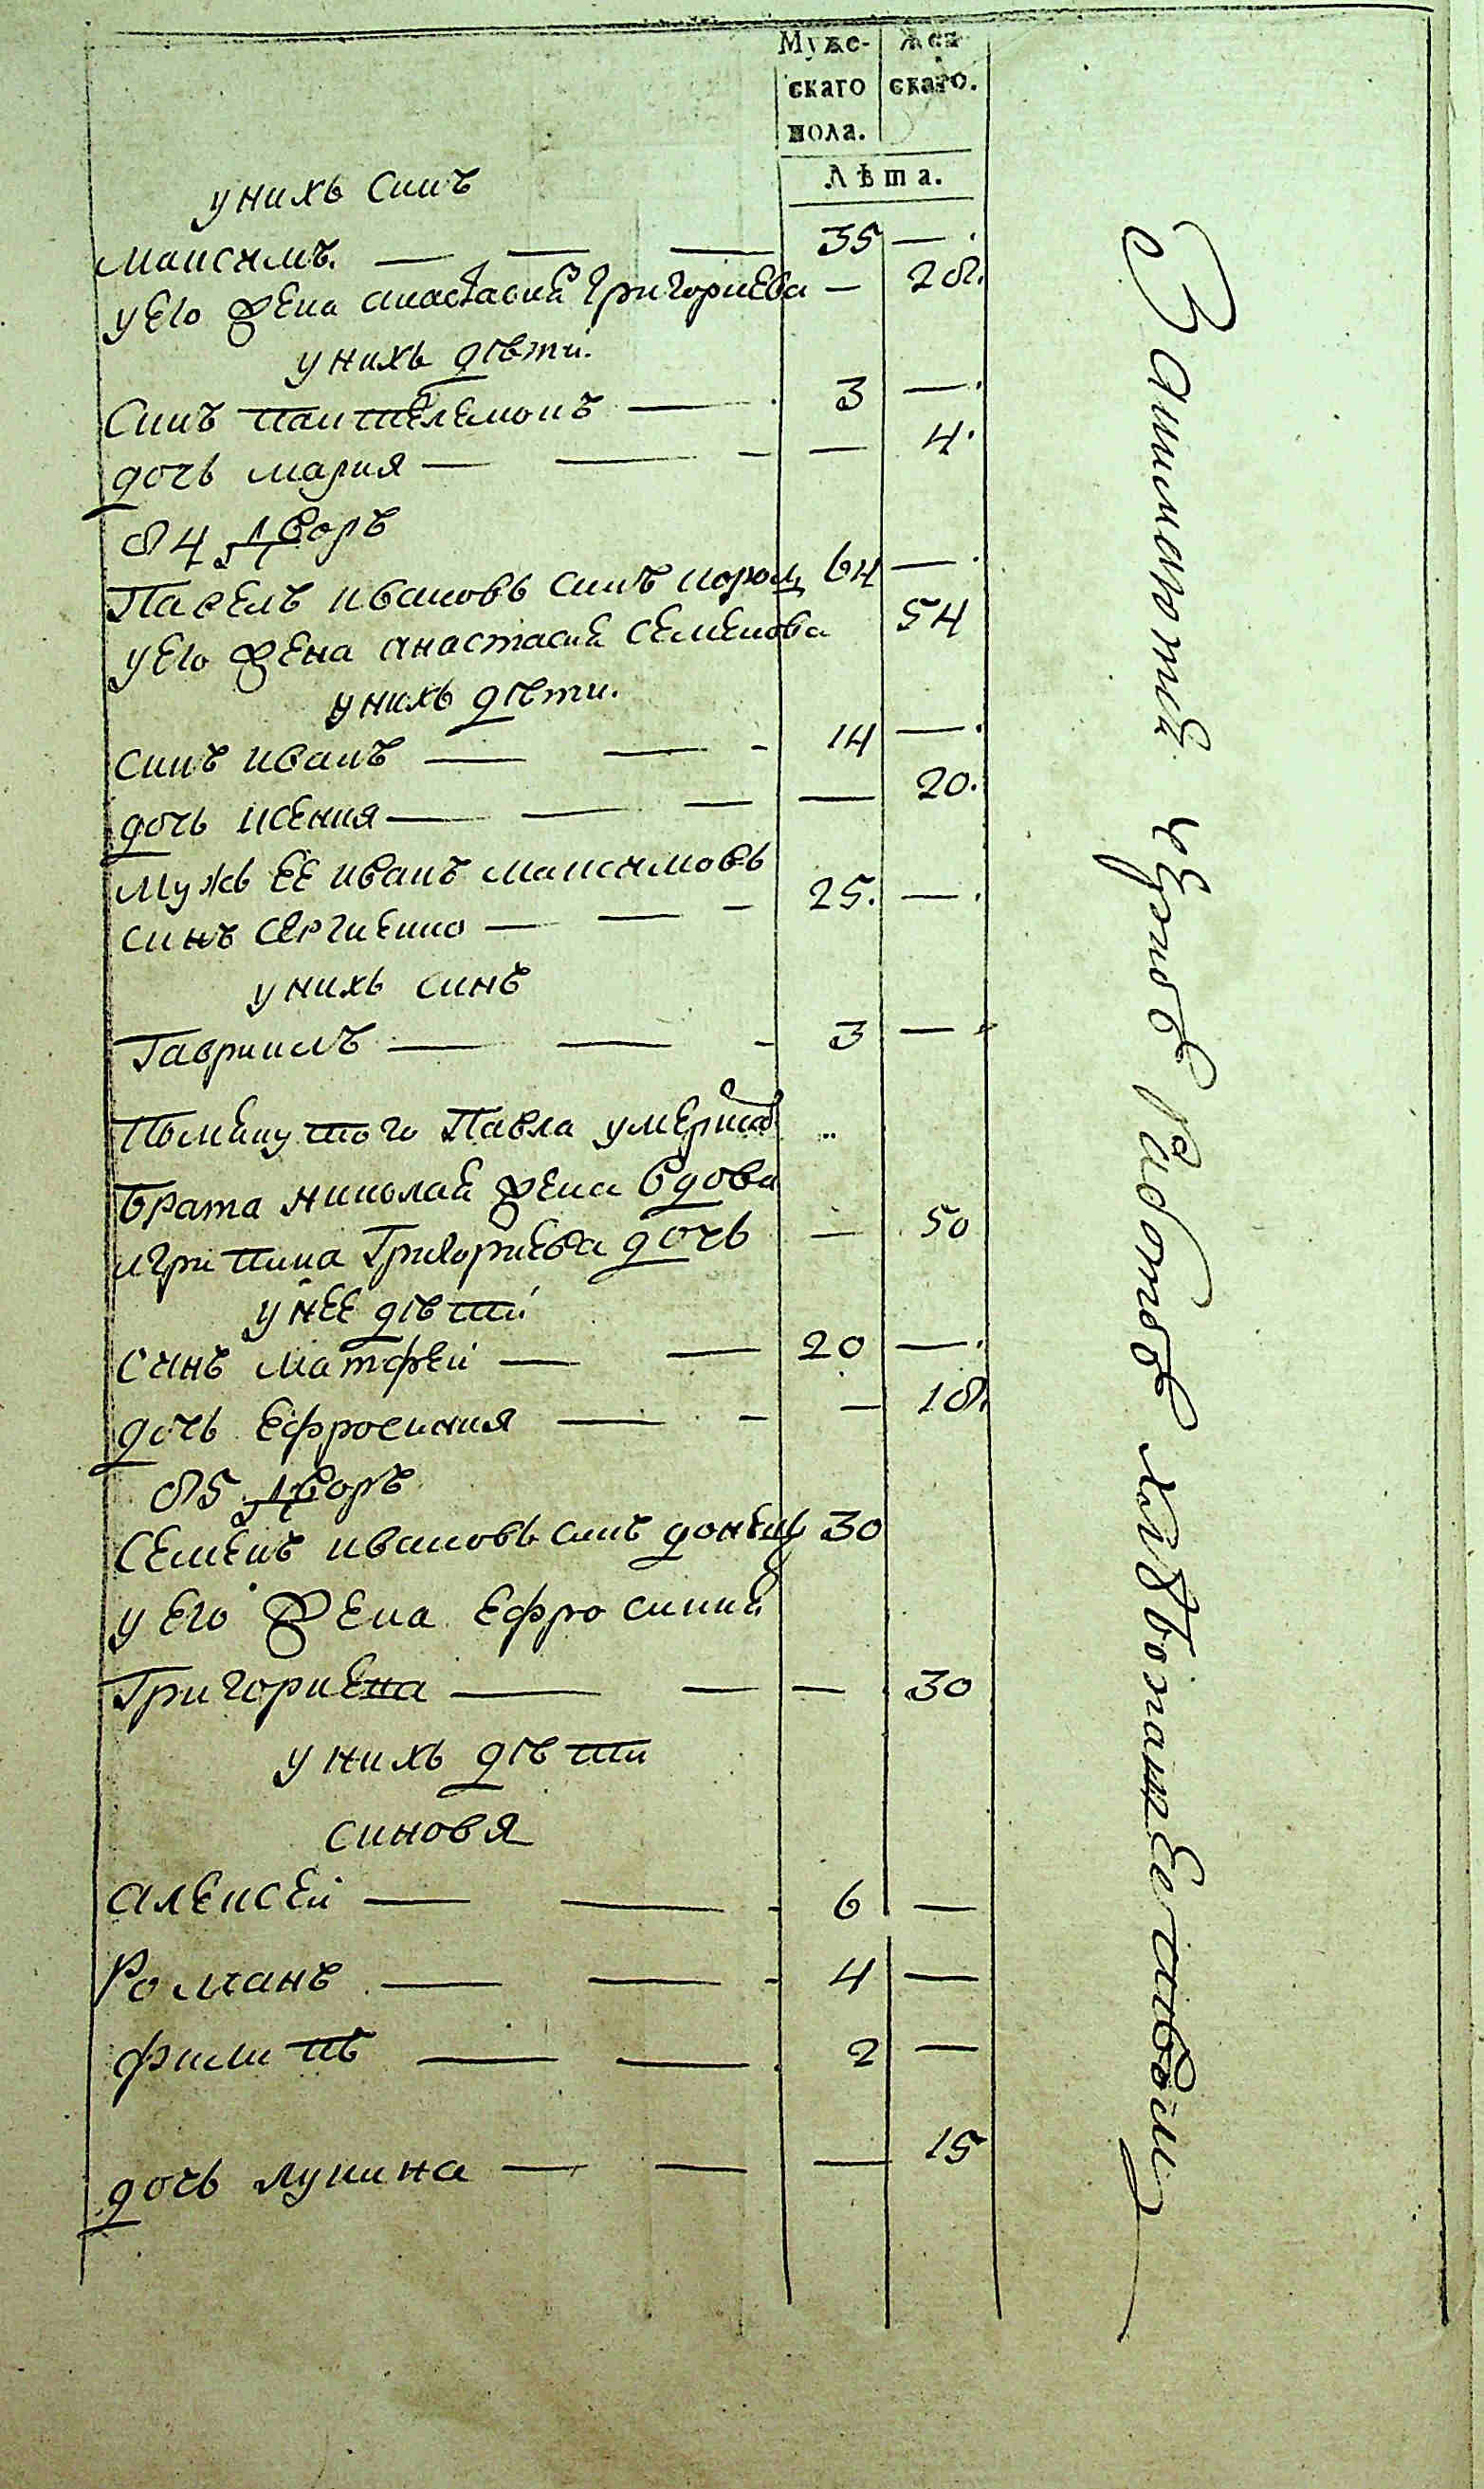 Муже- Жен
скаго скаго.
пола.
Лѣта.
унихь синъ
максимъ. — — — 35 — .
уего жена анастасия Григориева — 28.
унихь дѣти.
Синъ пантелемонъ — 3 — .
дочь мария — — - — 4.
84 дворъ
Павелъ ивановь синъ 64 — .
уего жена анастасия Семенова 54
унихь дѣти.
синъ иванъ — — - 14 — .
дочь ксения — — — — 20.
Мужь ее иванъ максимовь
синъ Сергиенко — — - 25. — .
унихь синъ
Гавриилъ — — - 3 —
Помянутого Павла умершаго
брата николая жена вдова
агрипина Григориева дочь — 50
унее дѣти
синъ матфей — — 20 — .
дочь Ефросиния — - — 18.
85 дворъ
Семенъ ивановь синъ донецъ 30
уего жена Ефросиния
Григориева — — — 30
унихь дѣти
синовя
алексей — — - 6 —
Романъ — — - 4 —
филипъ — — 2 —
дочь лукина — — — 15
Занимаются чрезъ работою хлѣбопашествомъ